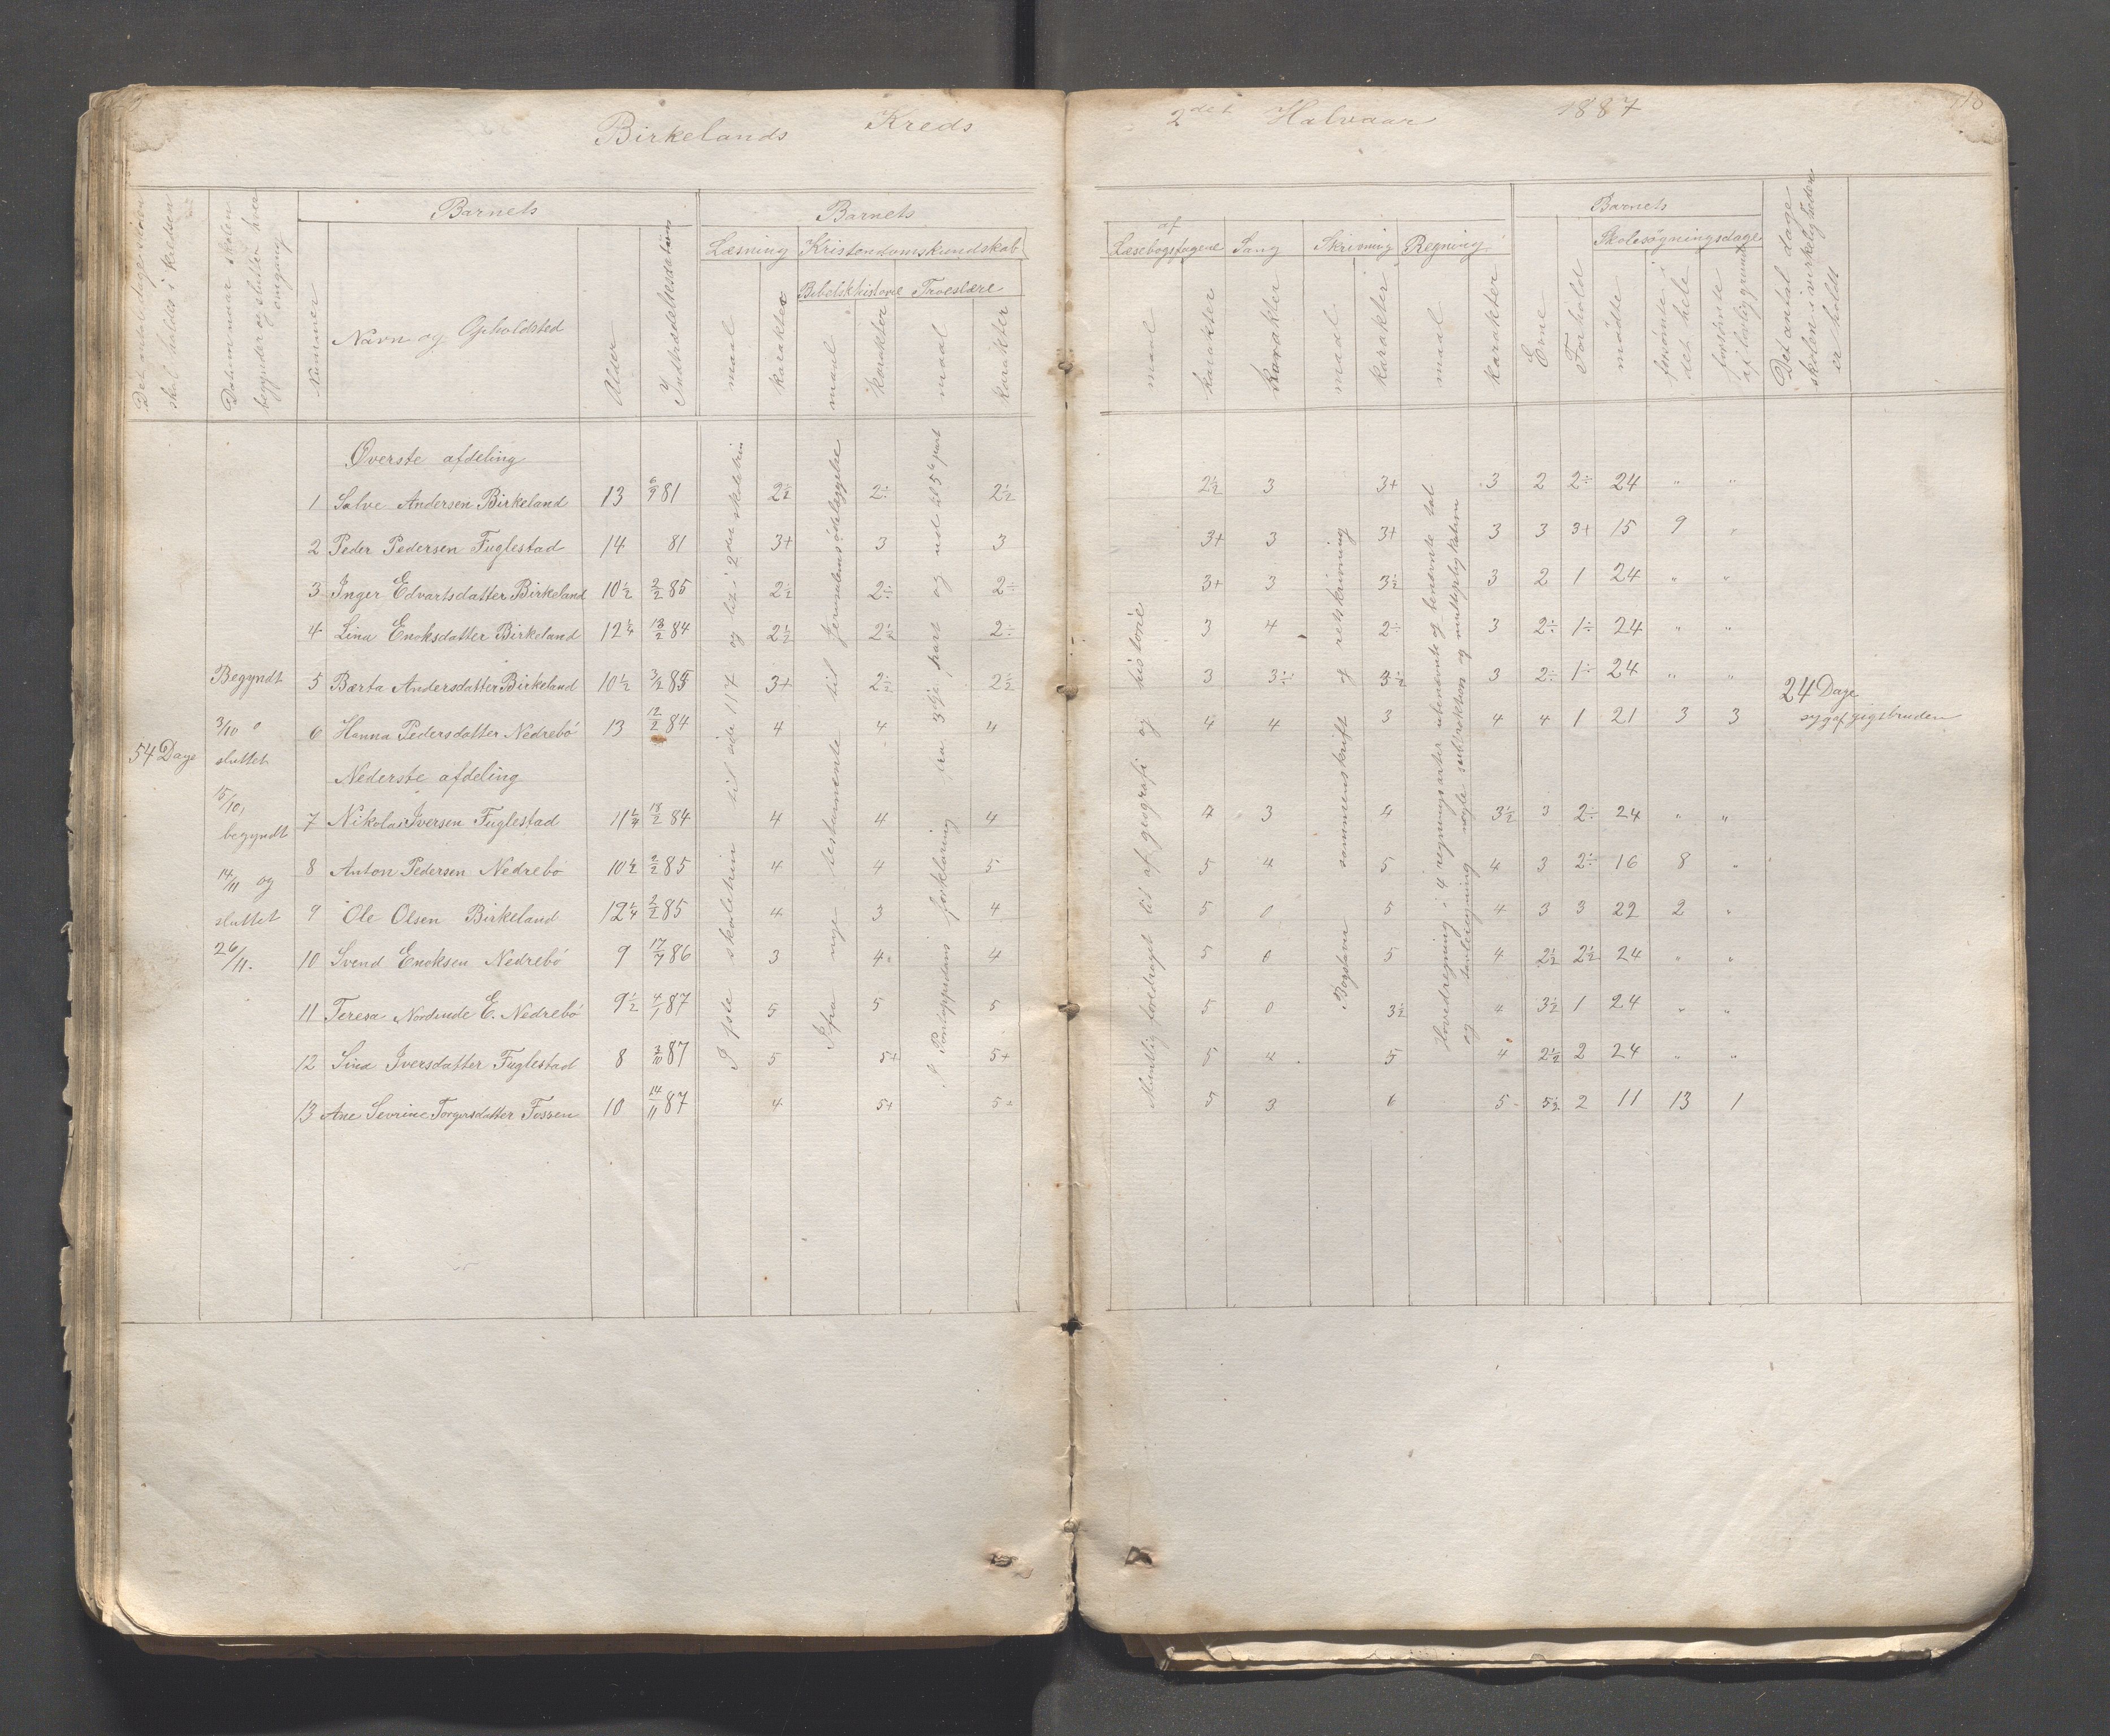 Birkelands Kreds
2det Halvaar 1887
Det antal dage skolen skal holdes i kredsen
Datum naar skolen begynder og slutter hver omgang
Barnets
Nummer
Navn og Opholdsted
Alder
Indtrædelsesdatum
Barnets
Læsning
Kristendomskundskab
Bibelskhistorie
Troeslære
maal
karakter
maal
karakter
maal
karakter
af
Læsebogsfagene
Sang
Skrivning
Regning
maal
karakter
karakter
maal
karakter
maal
karakter
Barnets
Evne
Forhold
Skolesøgningsdage
mødte
forsømte det hele
forsømte af lovlig grund
Det antal dage skolen i virkeligheden er holdt
Øverste afdeling
1 Salve Andersen Birkeland 13 6/9 81 2½ 2÷ 2½ 2½ 3 3+ 3 2 2÷ 24 " "
2 Peder Pedersen Fuglestad 14 81 3+ 3 3 3+ 3 3+ 3 3 3+ 15 9 "
3 Inger Edvartsdatter Birkeland 10½ 2/2 85 2½ 2÷ 2÷ 3+ 3 3½ 3 2 1 24 " "
4 Lina Enoksdatter Birkeland 12¼ 13/2 84 2½ 2½ 2÷ 3 4 2÷ 3 2÷ 1÷ 24 " "
5 Bærta Andersdatter Birkeland 10½ 3/2 85 3+ 2½ 2½ 3 3÷ 3½ 3 2÷ 1÷ 24 " "
6 Hanna Pedersdatter Nedrebö 13 12/2 84 4 4 4 4 4 3 4 4 1 21 3 3
Nederste afdeling
7 Nikolai Iversen Fuglestad 11¼ 18/2 84 4 4 4 4 3 4 3½ 3 2÷ 24 " "
8 Anton Pedersen Nedrebö 10½ 2/2 85 4 4 5 5 4 5 4 3 2÷ 16 8 "
9 Ole Olsen Birkeland 12¼ 2/2 85 4 3 4 5 0 5 4 3 3 22 2 "
10 Svend Enoksen Nedrebö 9 17/7 86 3 4 4 5 0 5 4 2½ 2½ 24 " "
11 Teresa Nordine E. Nedrebö 9½ 4/1 87 5 5 5 5 0 3½ 4 3½ 1 24 " "
12 Sina Iversdatter Fuglestad 8 3/10 87 5 5+ 5+ 5 4 5 4 2½ 2 24 " "
13 Ane Sevrine Torgersdatter Fossen 10 14/11 87 4 5+ 5 5 3 6 5 5½ 2 11 13 1
54 Dage
Begyndt
3/10
sluttet
15/10,
begyndt
14/11 og
sluttet
26/11.
I 1ste skoletrin til side 117 og lidt i 2det skoletrin
Ifra nye testamente til Jerusalems ødelæggelse
I Pontoppidans forklaring fra 3dje part og ud til 5te part
Mundtlig foredraget lidt af geografi og historie
Bogstaver sammenskrift og retskrivning
Hovedregning i 4 regningsarter ubenævnte og benævnte tal
og tavleregning nogle subtraktion og multiplikation
24 Dage
syg af gigtbruden